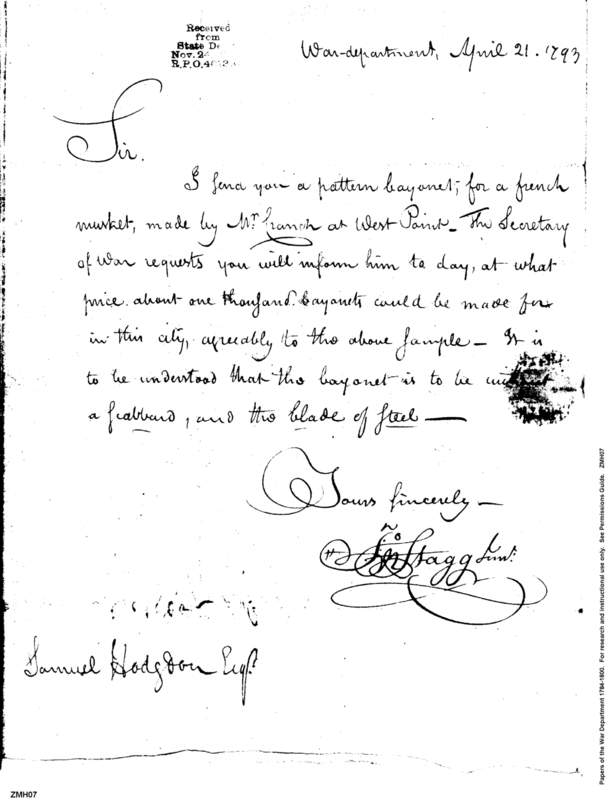 Received
from
State De
Nov. 2
R.P.O. 4
War-department, April 21. 1793
Sir.
I send you a pattern bayonet, for a french
musket, made by Mr. at West Point_ The Secretary
of War requests you will inform him to day, at what
price about one thousand bayonets could be made for
in this city, agreeably to the above sample_ It is
to be understood that the bayonet is to be
a scabbard, and the blade of steel —
Yours sincerely —
Jno Stagg Junr.
Samuel Hodgdon Esqr.
Papers of the War Department 1784-1800. For research and instructional use only. See Permissions Guide. ZMH07
ZMH07